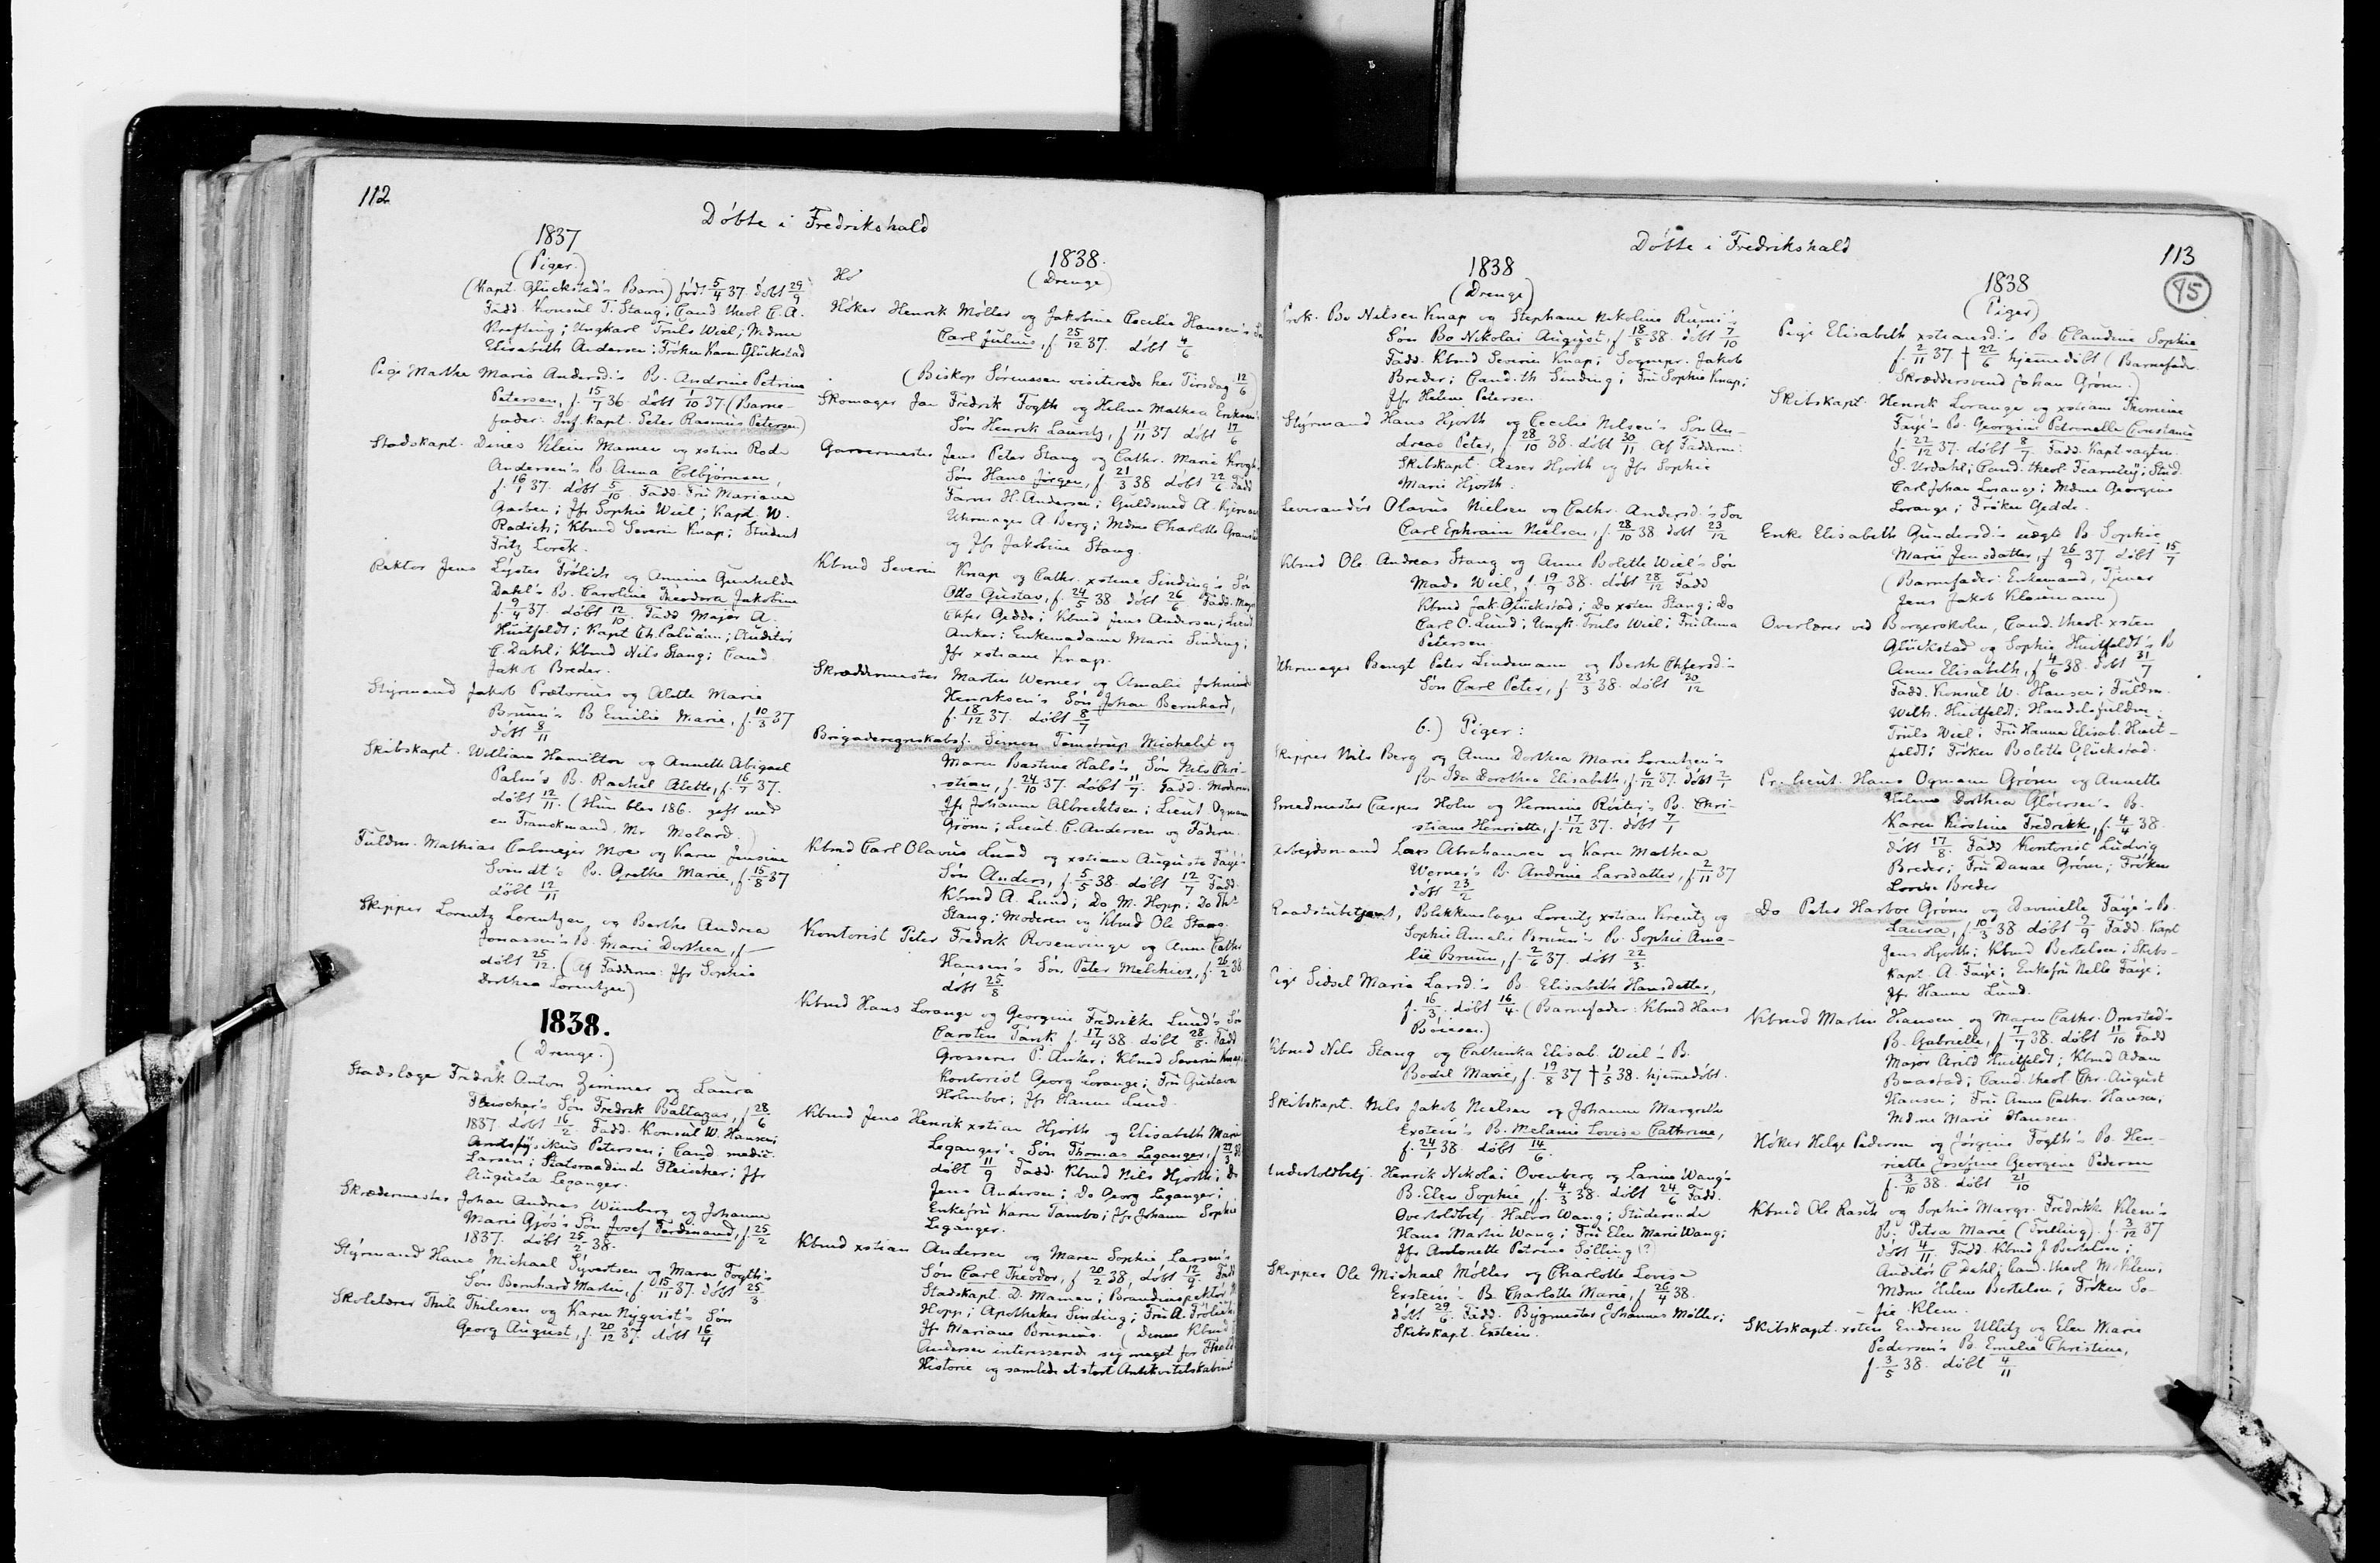 112
Döbte i Fredrikshald
1837
(Piger.)
(Kapt. Glückstad's Barn) född 5/4 37 döbt 29/9
Fadd. Konsul T. Stang; Cand. theol C. A.
Ungkarl Truls Wiel; Mdme
Elisabeth Andersen; Fröken Karen Glückstad
Pige Mathe Marie Andersd.'s B. Andrine Petrine
Petersen, f. 15/7 36 döbt 1/10 37. (Barne-
fader: Inf. Kapt. Peter Rasmus Petersen)
Stadskapt. Denes Klein Mamen og xstine Rod
Andersen's B. Anna Colbjörnsen,
f. 16/1 37. döbt 5/10. Fadd. Frü Mariane
Garben; Jfr Sophie Wiel; Kapt. W.
Radich; Kbmd Severin Knap; Student
Fritz Lorck.
Rektor Jens Lystes Frölich og Annine Gunhilde
Dahl's B. Caroline Theodora Jakobine
f. 9/4 37. döbt 12/10. Fadd Major A.
Huitfeldt; Kapt Ch. Auditör
C. Dahl; Kbmd Nils Stang; Cand
Jakob Breder.
Styrmand Jakob Prætorius og Alette Marie
Brunn's B Emilie Marie, f. 10/3 37
döbt 8/11
Skibskapt. William Hamilton og Annette Abigael
Palm's B. Rachel Alette, f. 16/7 37.
döbt 12/11. (Hun blev 186. gift med
en Franskmand, Mr Molard.)
Fuldm. Mathias Colmejer Moe og Karen Jensine
Svindt's B. Grethe Marie, f. 15/8 37
döbt 12/11
Skipper Lorentz Lorentzen og Berthe Andrea
Jonassen's B. Marie Dorthea, f —
döbt 25/12. (Af Fadderne: Jfr Sophie
Dorthea Lorentzen)
1838.
(Drenge.)
Stadslæge Fredrik Anton Zimmer og Laura
Fleischer's Sön Fredrik Baltazar, f. 28/6
1837. döbt 16/2. Fadd. Konsul W. Hansen;
Amtsfysikus Petersen; Cand. medic.
Larsen; Statsraadinde Fleischer; Jfr
Augusta Leganger.
Skrædermester Johan Andreas Wünberg og Johanne
Marie Gjös's Sön Josef Ferdinand, f. 25/2
1837. döbt 25/2 38.
Styrmand Hans Michael Syvertsen og Maren Fogth's
Sön Bernhard Martin, f. 15/11 37. döbt 25/3
Skolelærer Thile Thilesen og Karen Nyqvist's Sön
Georg August, f. 20/12 37. döbt 16/4
1838.
(Drenge)
Hö
Höker Henrik Möller og Jakobine Cecilie Hansen's Sön
Carl Julius, f 25/12 37. döbt 4/6
(Biskop Sörenssen visiterede her Tirsdag 12/6)
Skomager Jan Fredrik Fogth og Helene Mathea Eriksen's
Sön Henrik Lauritz, f 11/11 37 döbt 17/6
Garvermester Jens Peter Stang og Cathr. Marie Krogh's
Sön Hans Jörgen, f. 21/3 38 döbt 22/6 Fadd
Farver H. Andersen; Guldsmed A.
Uhrmager A. Berg; Mdme Charlotte
og Jfr Jakobine Stang.
Kbmd Severin Knap og Cathr. xstine Sinding's Sön
Otto Gustav, f. 24/5 38 döbt 26/6 Fadd. Major
Gedde; Kbmd Jens Andersen; Lieut.
Anker; Enkemadame Marie Sinding;
Jfr xstiane Knap.
Skræddermester Martin Werner og Amalie
Henriksen's Sön Johan Bernhard,
f. 18/12 37. döbt 8/7
Brigaderegnskabsf. Simon Tomstrup Michelet og
Maren Bastine Hals's Sön Nils Chri-
stian, f. 24/10 37. döbt 11/7. Fadd. Moderen
Jfr Johanne Albrechtsen; Lieut Ogmann
Grönn; Lieut. C. Andersen og Faderen.
Kbmd Carl Olavus Lund og xstiane Auguste Faye's
Sön Anders, f. 5/5 38. döbt 12/7 Fadd.
Kbmd A. Lund; Do M. Hopp; Do Ths
Stang; Moderen og Kbmd Ole Stang.
Kontorist Peter Fredrik Rosenvinge og Anne Cathr
Hansen's Sön Peter Melchior, f. 26/2 38
döbt 25/8
Kbmd Hans Lorange og Georgine Fredrikke Lund's Sön
Carsten Tank f. 17/4 38. döbt 28/8. Fadd
Grosserer P. Anker; Kbmd Severin Knap;
Kontorist Georg Lorange; Frü Gustava
Holmboe; Jfr Hanne Lund.
Kbmd Jens Henrik xstian Hjorth og Elisabeth Marie
Leganger's Sön Thomas Leganger, f
döbt 11/9 Fadd. Kbmd Nils Hjorth; Do
Jens Andersen; Do Georg Leganger;
Enkefrü Karen Tambo; Jfr Johanne Sophie
Leganger.
Kbmd xstian Andersen og Maren Sophie Larsen's
Sön Carl Theodor, f 20/2 38, döbt 12/9. Fadd
Stadskapt. D. Mamen; Brandinspektör
Hopp; Apotheker Sinding; Frü A. Frölich;
Jfr Mariane Brunius. (Denne Kbmd
Andersen interesserede sig meget for
Historie og samlede et stort Antikvitetskabinet
Döbte i Fredrikshald
113
95
1838
(Drenge)
Prok. Bo Nilsen Knap og Stephane Nikoline
Sön Bo Nikolai August, f 18/8 38. döbt 7/10
Fadd. Kbmd Severin Knap; Sognepr. Jakob
Breder; Cand. th Sinding; Frü Sophie Knap;
Jfr Helene Petersen
Styrmand Hans Hjorth og Cecilie Nilsen's Sön An-
dreas Peter, f 28/10 38. döbt 30/11 Af Fadderne:
Skibskapt. Asser Hjorth og Jfr Sophie
Marie Hjorth.
Leverandör Olavus Nielsen og Cathr. Andersd.'s Sön
Carl Ephraim Nielsen, f. 28/10 38 döbt 23/12
Kbmd Ole Andreas Stang og Anne Bolette Wiel's Sön
Mads Wiel, f. 19/9 38. döbt 28/12 Fadd
Kbmd Jak. Glückstad; Do xsten Stang; Do
Carl O. Lund; Ungk. Truls Wiel; Frü Anna
Petersen
Uhrmager Bengt Peter Lindemann og Berthe
Sön Carl Peter, f. 23/3 38. döbt 30/12
6.) Piger:
Skipper Nils Berg og Anne Dorthea Marie Lorentzen's
B. Ida Dorothea Elisabeth, f. 6/12 37. döbt 2/1
Smedmester Casper Holm og Hermine Röster's B. Chri-
stiane Henriette, f. 17/12 37. döbt 7/1
Arbejdsmand Lars Abrahamsen og Karen Mathea
Werner's B. Andrine Larsdatter, f 2/11 37
döbt 23/2
Raadstubetjent, Blikkenslager Lorentz xstian Kreutz og
Sophie Amalie Bruun's B. Sophie Ama-
lie Bruun, f. 2/6 37. döbt 22/3.
Pige Sidsel Marie Larsd.'s B. Elisabeth Hansdatter,
f. 16/3. döbt 16/4. (Barnefader: Kbmd Hans
Böresen.)
Kbmd Nils Stang og Cathrinka Elisab. Wiel's B.
Bodil Marie, f. 19/8 37 † 1/5 38. hjemmedöbt.
Skibskapt. Nils Jakob Nielsen og Johanne Margrethe
Exstein's B. Melanie Lovise Cathrine,
f. 24/1 38. döbt 14/6.
Undertoldbetj. Henrik Nikolai Ovenberg og Larine Wang's
B. Elen Sophie, f. 4/3 38. döbt 24/6 Fadd.
Overtoldbetj. Halvor Wang; Studerende
Hans Martin Wang; Frü Elen Marie Wang;
Jfr Antonette Petrine Sölling (?)
Skipper Ole Michael Möller og Charlotte Lovise
Exstein's B. Charlotte Marie, f 26/4 38.
döbt 29/6. Fadd. Bygmester Johannes Möller;
Skibskapt. Exstein.
1838
(Piger)
Pige Elisabeth xstiansd.'s B Claudine Sophie
f. 2/11 37 † 22/6 hjemmedöbt (Barnefader
Skræddersvend Johan Grönn.)
Skibskapt. Henrik Lorange og xstiane Thomine
Faye's B. Georgine Petronelle Constance
f. 22/12 37. döbt 8/7 Fadd. Kapt.vagtm.
S. Urdahl; Cand. theol. Fearnley; Stud.
Carl Johan Lorange; Mdme Georgine
Lorange; Fröken Gedde.
Enke Elisabeth Gundersd.'s uægte B. Sophie
Marie Jensdatter, f 26/9 37 döbt 15/7
(Barnefader: Enkemand, Tjener
Jens Jakob Kleumann)
Overlærer ved Borgerskolen, Cand. theol. xsten
Glückstad og Sophie Huitfeldt's B
Anne Elisabeth, f 4/6 38. döbt 31/7
Fadd. Konsul W. Hansen; Fuldm.
Wilh. Huitfeldt; Handelsfuldm.
Truls Wiel; Frü Hanne Elisab. Huit-
feldt; Fröken Bolette Glückstad.
Pr. lieut. Hans Ogmann Grönn og Annette
Helene Dorthea Glöersen's B.
Karen Kirstine Fredrikk, f. 4/4 38.
döbt 17/8. Fadd Kontorist Ludvig
Breder; Frü Danae Grönn; Fröken
Lovise Breder
Do Peter Harboe Grönn og Davinelle Faye's B.
Laura, f 10/3 38 döbt 9/9 Fadd. Kapt
Jens Hjorth; Kbmd Bertelsen; Skibs-
kapt. A. Faye; Enkefrü Nelle Faye;
Jfr Hanne Lund.
Kbmd Martin Hansen og Maren Cathr. Omsted's
B. Gabrielle, f 7/7 38. döbt 11/10 Fadd
Major Arild Huitfeldt; Kbmd Adam
Braastad; Cand. theol. Chr. August
Hansen; Frü Anne Cathr. Hansen;
Mdme Marie Hansen.
Höker Helge Pedersen og Jörgine Fogth's B. Hen-
riette Josefine Georgine Pedersen
f. 3/10 38. döbt 21/10
Kbmd Ole Rasch og Sophie Margr. Fredrikke Klem's
B. Petra Marie (Tvilling) f. 3/12 37
döbt 4/11. Fadd. Kbmd J Bertelsen;
Auditör C Dahl; Cand. theol M. Klem;
Mdme Helene Bertelsen; Fröken So-
fie Klem.
Skibskapt. xsten Endresen Ullitz og Elen Marie
Pedersen's B. Emelie Christine,
f 3/5 38. döbt 4/11